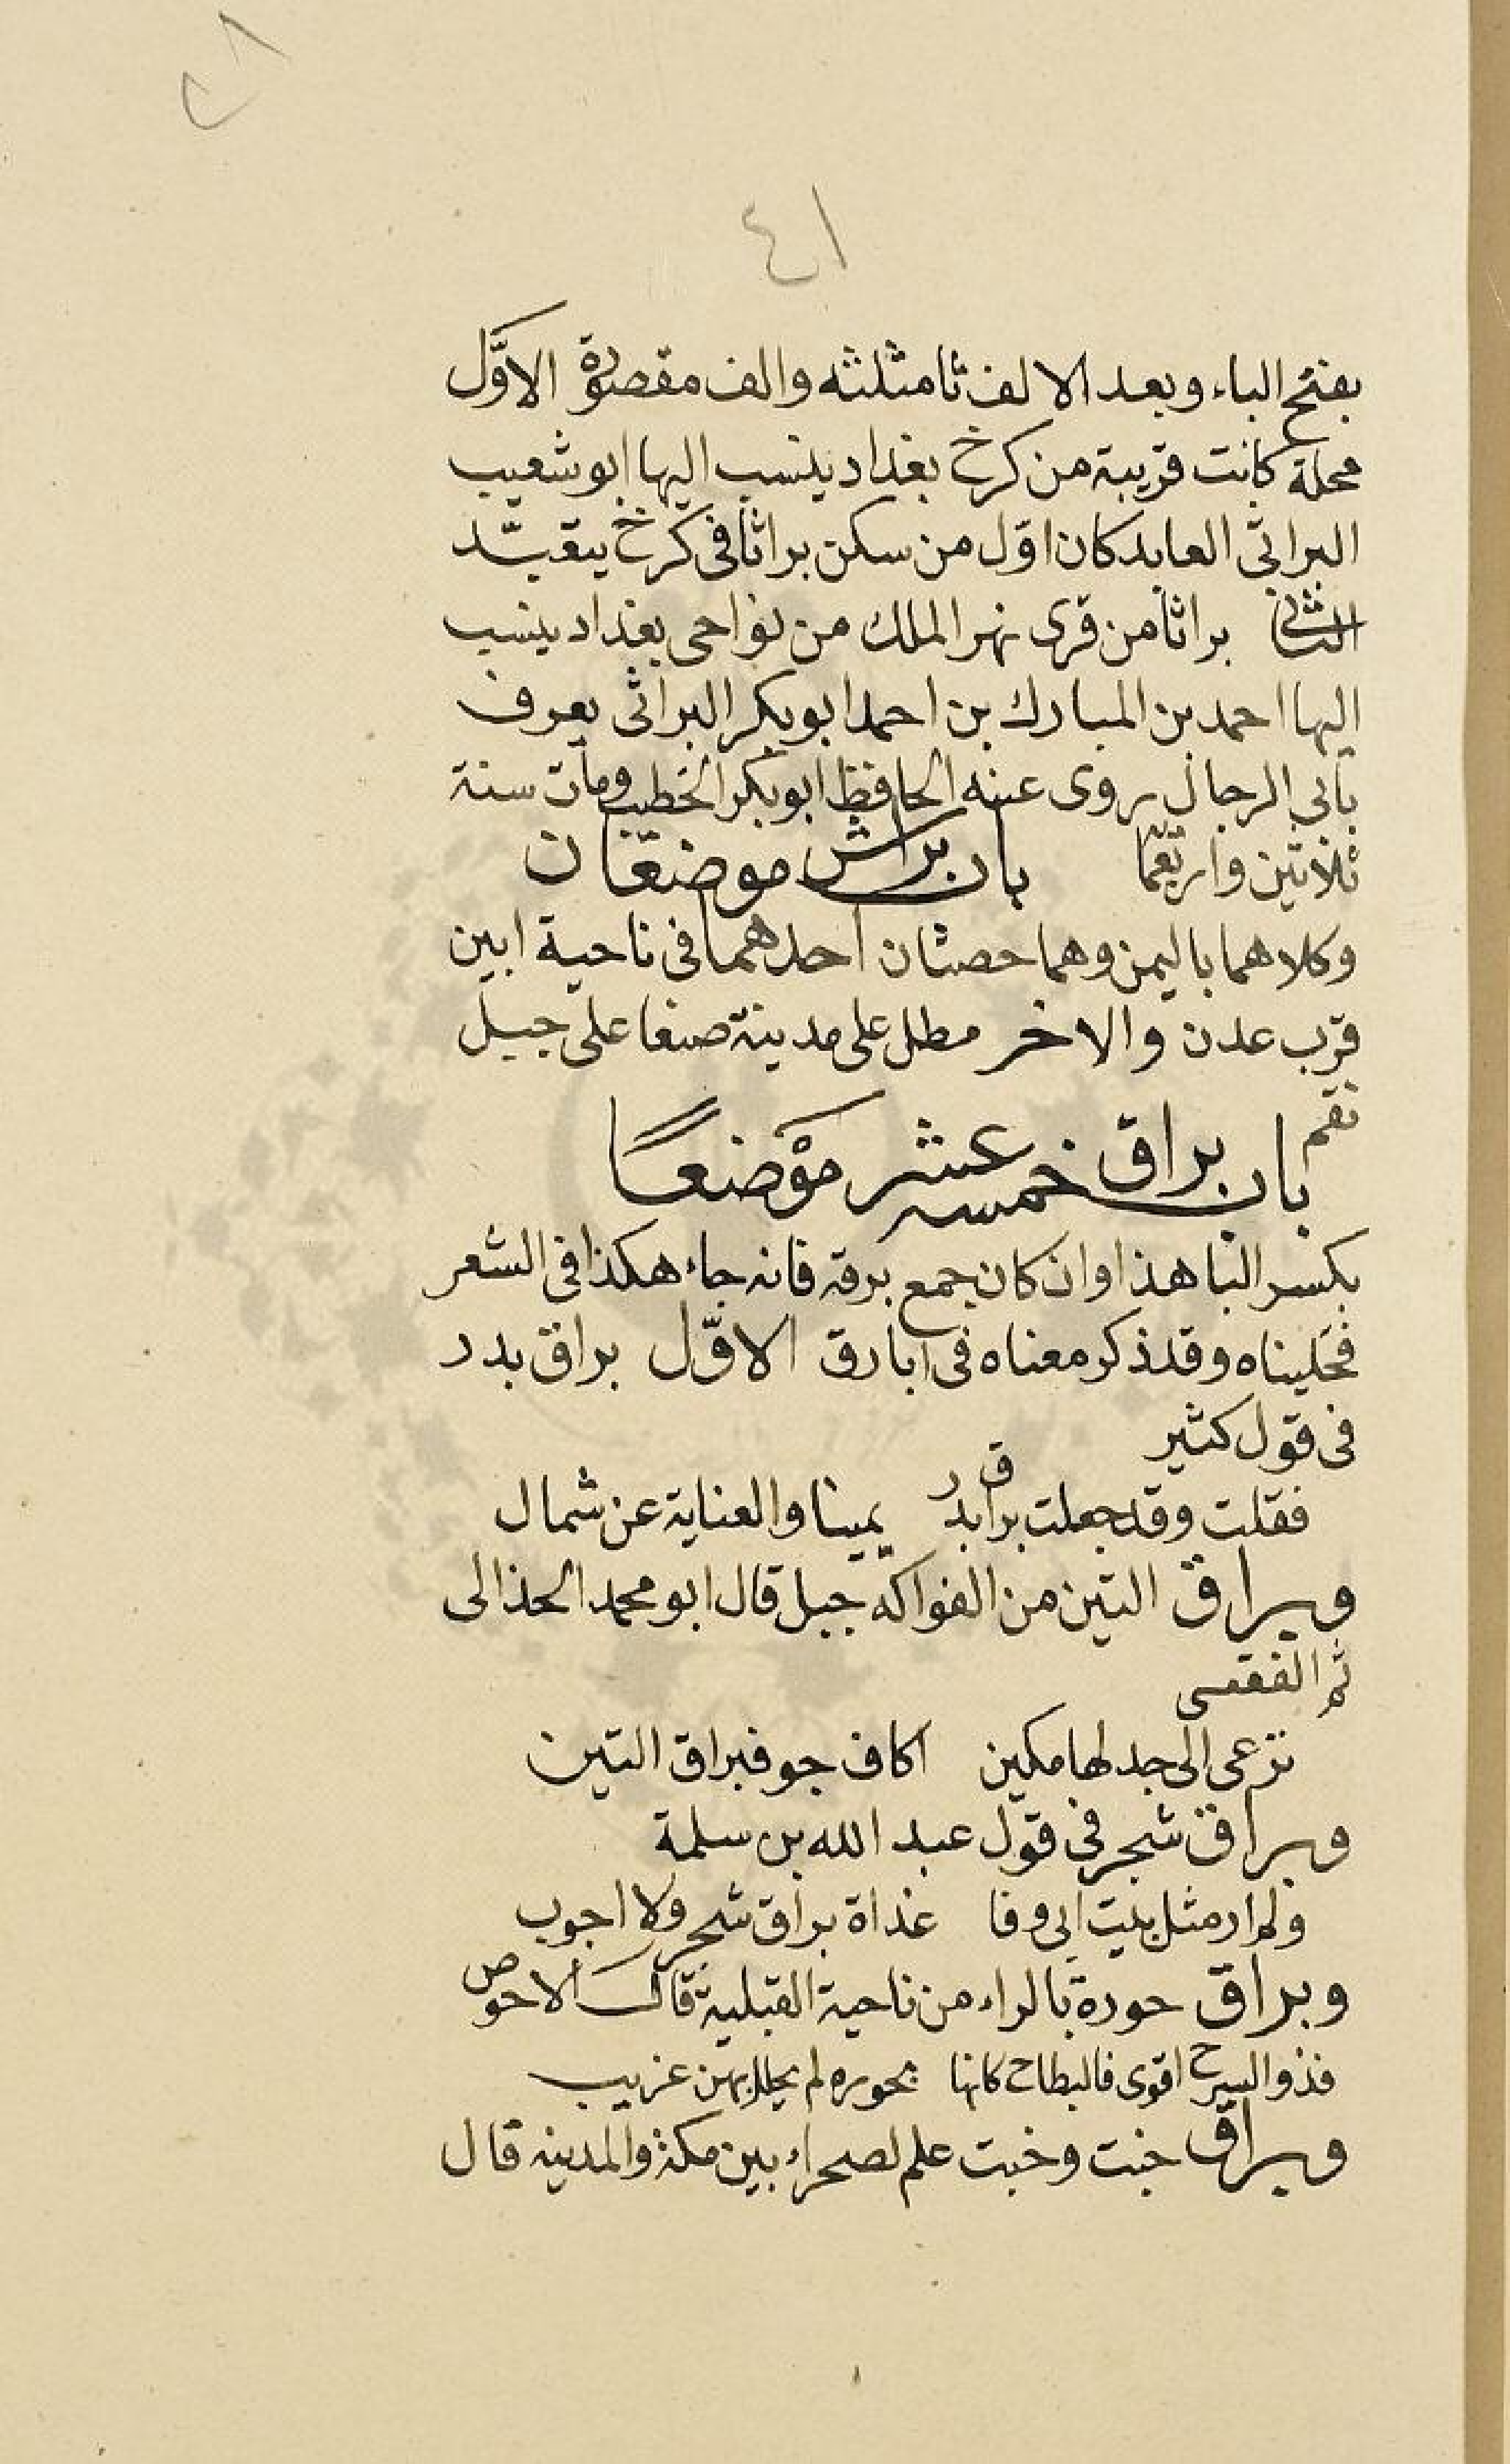 ٤١
بفتح الباء وبعد الالف ثا مثلثه والف مقصورة الاوَّل
محلة كانت قريبة من كرخ بغداد ينسب اليها ابو شعيب
البراثى العابد كان اوّل من سكن براثا فى كرخ يتعبّد
الثانى براثا من قرى نهر الملك من نواحى بغداد ينسب
اليها احمد بن المبارك بن احمد ابو بكر البراثى يعرف
بابي الرجال روى عنه الحافظ ابو بكر الخطيب ومات سنة
ثلاثين واربعما باب براش موضعان
وكلاهما باليمن وهما حصنان احدهما فى ناحية ابين
قرب عدن والاخر مطل على مدينة صنعا على جبل
نقم
باب براق خمسه عشر موْضعًا
بكسر البا هذا وان كان جمع برقه فانه جاء هكذا فى الشعر
فخليناه وقد ذكر معناه فى ابارق الاوّل براق بدر
فى قول كثير
فقلت وقد جعلت براق بدر يمينا والعناية عن شمال
وبراق التين من الفواكه جبل قال ابو محمد الحذالى
ثم الفقعسى
ترعى الى جد لها مكين اكاف جو فبراق التين
وبراق شجر فى قول عبد الله بن سلمة
ولم ار مثل بنت ابى وفا غداة براق شجر ولا اجوب
وبراق حورة بالراء من ناحية القبلية قال الاحوص
فذو السرح اقوى فالبطاح كانها بحوره لم يحلل بهن عريب
وبراق خبت وخبت علم لصحراء بين مكة والمدينه قال